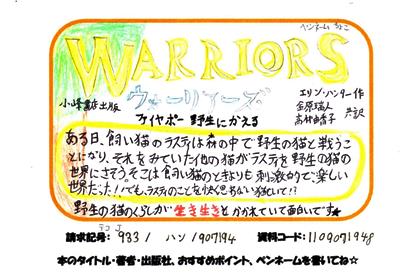 ペンネーム ちょこ
WARRIORS
ウォーリアーズ
小峰書店出版
エリン・ハンター作
金原瑞人
高林由香子 共訳
ファイヤポー 野生にかえる
ある日、飼い猫のラスティは森の中で野生の猫と戦うこ
とになり、それをみていた他の猫がラスティを野生の猫の
世界にさそう。そこは飼い猫のときよりも刺激的で楽しい
世界だった!!でも、ラスティのことを快く思わない猫もいて!?
野生の猫のくらしが生き生きとかかれていて面白いです★
請求記号: 933 / ハン / 1907194
資料コード: 1109071948
本のタイトル・著者・出版社、おすすめポイント、ペンネームを書いてね☆